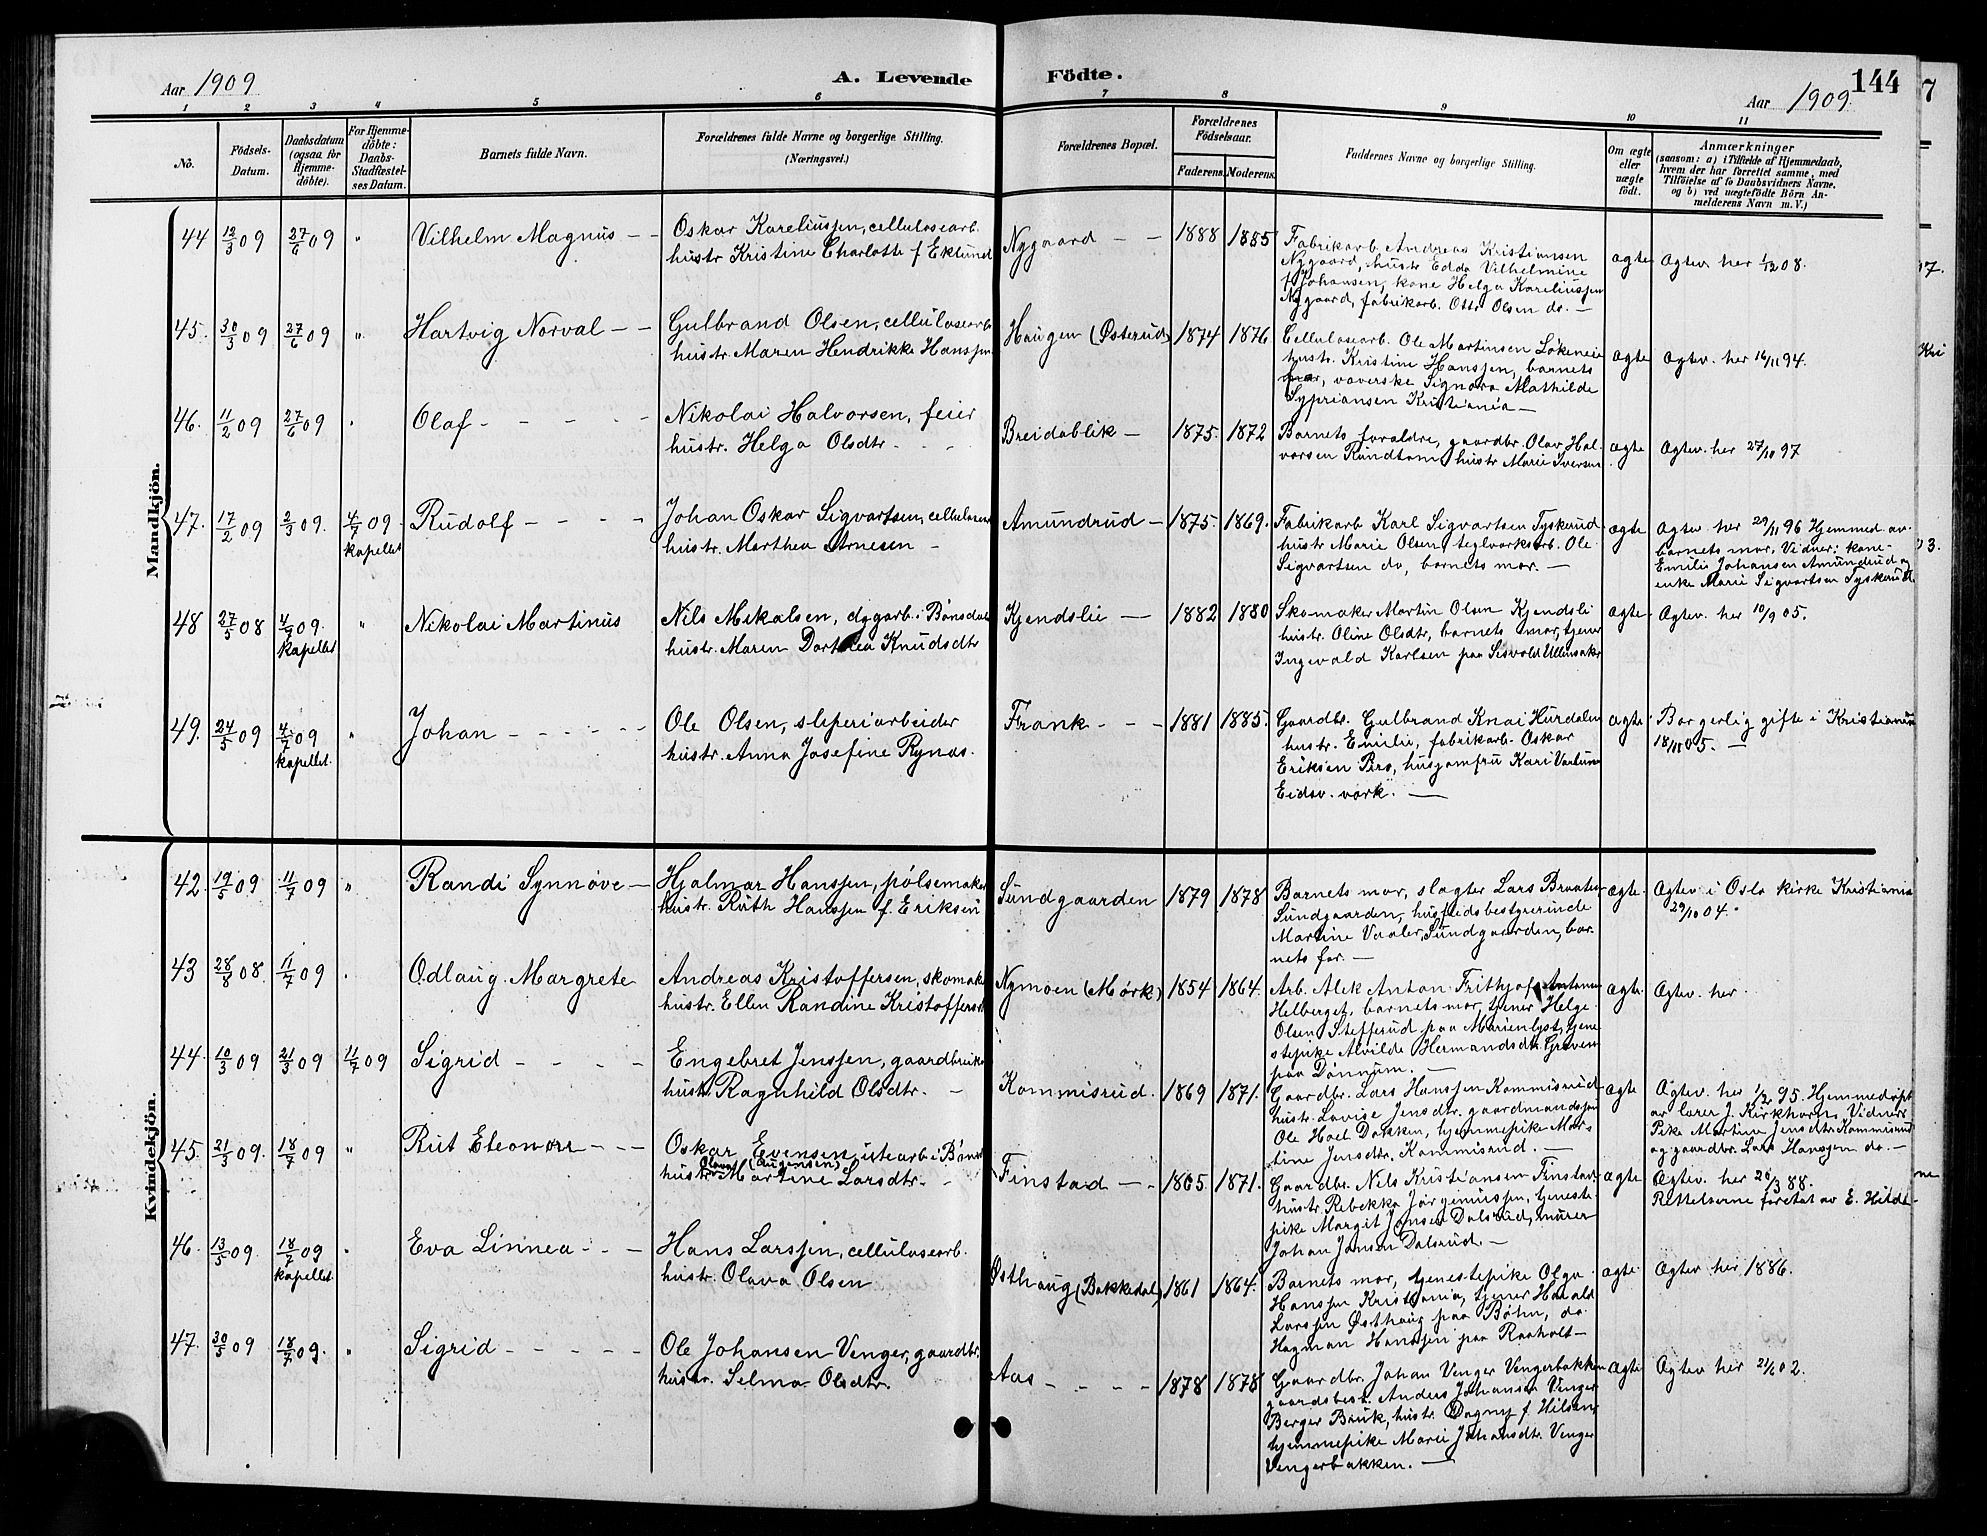 Aar 1909
A. Levende
Födte.
Aar 1909.
144
1 2 3 4 5 6 7 8 9 10 11
No.
Födsels-
Datum.
Daabsdatum
(ogsaa for
Hjemme-
döbte).
For Hjemme-
döbte:
Daabs-
Stadfæstel-
ses Datum.
Barnets fulde Navn.
Forældrenes fulde Navne og borgerlige Stilling.
(Næringsvei.)
Forældrenes Bopæl.
Forældrenes
Födselsaar.
Faderens. Moderens.
Faddernes Navne og borgerlige Stilling.
Om ægte
eller
uægte
födt.
Anmærkninger
(saasom: a) i Tilfælde af Hjemmedaab,
hvem der har forrettet samme, med
Tilföielse af to Daabsvidners Navne,
og b) ved uægtefödte Börn An-
melderens Navn m. V.)
Mandkjön.
44 12/3 09 27/6 09 " Vilhelm Magnus - -
Oskar Kareliussen, cellulosearb.
hustr Kristine Charlotte f Eklund
Nygaard - - 1888 1885
Fabrikarb. Andreas Kristiansen
Nygaard, hustr Edda Vilhelmine
f Johansen, kone Helga Kareliussen
Nygaard, fabrikarb. Otto Olsen do. -
ægte Ægtev. her 1/12 08.
45. 30/3 09 27/6 09 " Hartvig Norval - -
Gulbrand Olsen, cellulosearb
hustr. Maren Hendrikke Hanssen
Haugen (Østerud) 1874 1876
Cellulosearb. Ole Martinsen Løkeneie
hustr. Kristine Hanssen, barnets
far, væverske Signora Mathilde
Sypriansen Kristiania -
ægte Ægtev. her 16/11 94.
46. 11/2 09 27/6 09 " Olaf - - - -
Nikolai Halvorsen, feier
hustr. Helga Olsdtr. - -
Breidablik - 1875. 1872
Barnets forældre, gaardbr. Olav Hal-
vorsen Randtom, hustr Marie Iversen
ægte Ægtev. her 27/10 97
47. 17/2 09 2/3 09. 4/7 09.
kapellet
Rudolf - - - -
Johan Oskar Sigvartsen, cellulosearb
hustr. Marthea Arnesen -
Amundrud - 1875. 1869.
Fabrikarb Karl Sigvartsen Tyskerud
hustr Marie Olsen, teglverksarb. Ole
Sigvartsen do, barnets mor. -
ægte Ægtev her 29/11 96 Hjemmed. av
barnets mor. Vidner: kone
Emilie Johansen Amundrud og
enke Marie Sigvartsen Tyskerud.
48 27/5 08 4/7 09.
kapellet
" Nikolai Martinus
Nils Mikalsen, dygarb. i Bønsdal
hustr. Maren Dorthea Knudsdtr
Kjendslie - 1882 1880
Skomaker Martin Olsen Kjendsli
hustr. Oline Olsdtr, barnets mor, tjener
Ingevald Karlsen paa Sisvold Ullensaker
ægte Ægtev. her 10/9 05.
49. 24/5 09 4/7 09
kapellet.
" Johan - - - - -
Ole Olsen, sliperiarbeider
hustr. Anna Josefine Rynas.
Frank - - - 1881 1885.
Gaardbr. Gulbrand Knai Hurdalen
hustr. Emilie, fabrikarb. Oskar
Eriksen Piro, husjomfru Kari
Eidsv. værk. -
ægte Borgerlig gifte i Kristiania
18/11 05. -
Kvindekjön.
42. 19/5 09 11/7 09 " Randi Synnøve -
Hjalmar Hanssen, pølsemaker
hustr. Ruth Hanssen f. Eriksen
Sundgaarden 1879 1878
Barnets mor, slagter Lars Braaten
Sundgaarden, husholdsbestyrerinde
Martine Vaaler, Sundgaarden, bar-
nets far. -
ægte Ægtev i Oslo kirke Kristiania
29/10 04.
43 28/8 08 11/7 09 " Odlaug Margrete
Andreas Kristoffersen, skomaker
hustr. Ellen Randine Kristoffersdt
Nymoen (Mørk) 1854 1864.
Arb. Alek Anton Frithjof Antonsen
Helberget, barnets mor, tjener Helge
Olsen Stefferud paa Marienlyst, tjene
stepike Alvilde Hermandsdtr. Græven
paa Dønnum. -
ægte. Ægtev. her.
44. 10/3 09 21/3 09 11/7 09 Sigrid - - - -
Engebret Jenssen, gaardbruker
hustr Ragnhild Olsdtr. -
Kommisrud. 1869 1871.
Gaardbr. Lars Hanssen Kommisrud
hustr. Lovise Jensdtr. gaardmandssøn
Ole Hoel Dokken, hjemmepike Mar-
tine Jensdtr. Kommisrud. -
ægte Ægtev. her 1/2 95. Hjemmedøpt
av lærer J. Kirkhorn. Vidner:
Pike Martine Jensdtr. Kommisrud
og gaardbr. Lars Hanssen do. -
45. 21/3 09. 18/7 09 " Rut Eleonora - - -
Oskar Evensen, utearb i Bøn
Olava (Augensen)
hustr. Martine Larsdtr. -
Finstad - - 1865. 1871.
Gaardbr. Nils Kristiansen Finstad
hustr. Rebekka Jørginussen, tjeneste-
pike Margit Jansen Dalsrud, murer
Johan Jansen Dalsrud. -
ægte Ægtev. her 26/3 88.
Rettelserne foretat av E. Hildt
46. 13/5 09. 18/7 09
kapellet
" Eva Linnea - - -
Hans Larssen, cellulosearb.
hustr. Olava Olsen
Østhaug (Bakkedal) 1861 1864.
Barnets mor, tjenestepike Olga
Hanssen Kristiania, tjener Harald
Larssen Østhaug paa Bøhn, do
Hagman Hanssen paa Raaholt -
ægte. Ægtev her 1886.
47. 30/5 09 18/7 09. " Sigrid - - - - -
Ole Johansen Venger, gaardbr.
hustr. Selma Olsdtr.
Aas - - - - 1878 1878
Gaardbr. Johan Venger Vengerbakken
gaardsbest. Anders Johansen Venger
Berger Bruk, hustr. Dagny f. Nilsen,
hjemmepike Marie Johansdtr. Venger
Vengerbakken. -
ægte Ægtev her 21/6 02.